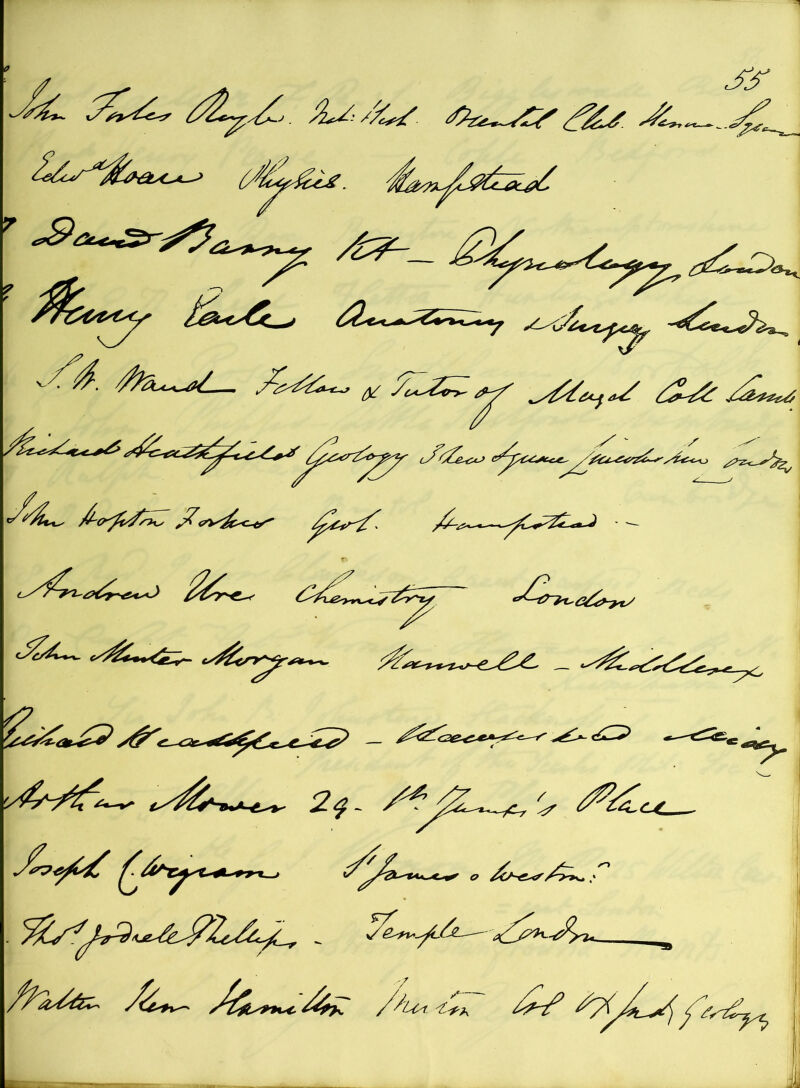 55
John Forbes Royle. Nat: Hist. Oriental Club. Square
Edwd Hoare Physics. Hampstead
David Barry Kt — Physiology, London
Henry Earle Anatomy & Surgery London
S. W. Waud Fellow & Tutor of Magd Coll Camb.
Richard Heathfield Geology 3 New Square Lincolns Inn London
John Hopton Forbes Geol. Hampstead --
Andrew Ure Chemistry London
John Minter Morgan Hanwell — Middlesex
Richard Heathfield — Hampstead
Arthur Mower 29. St. James's Place
Joseph C. Wigram St James Westmr
Thos Jodrell Phillips - Temple London
Walter Kerr Hamilton Merton Col Oxford Geology